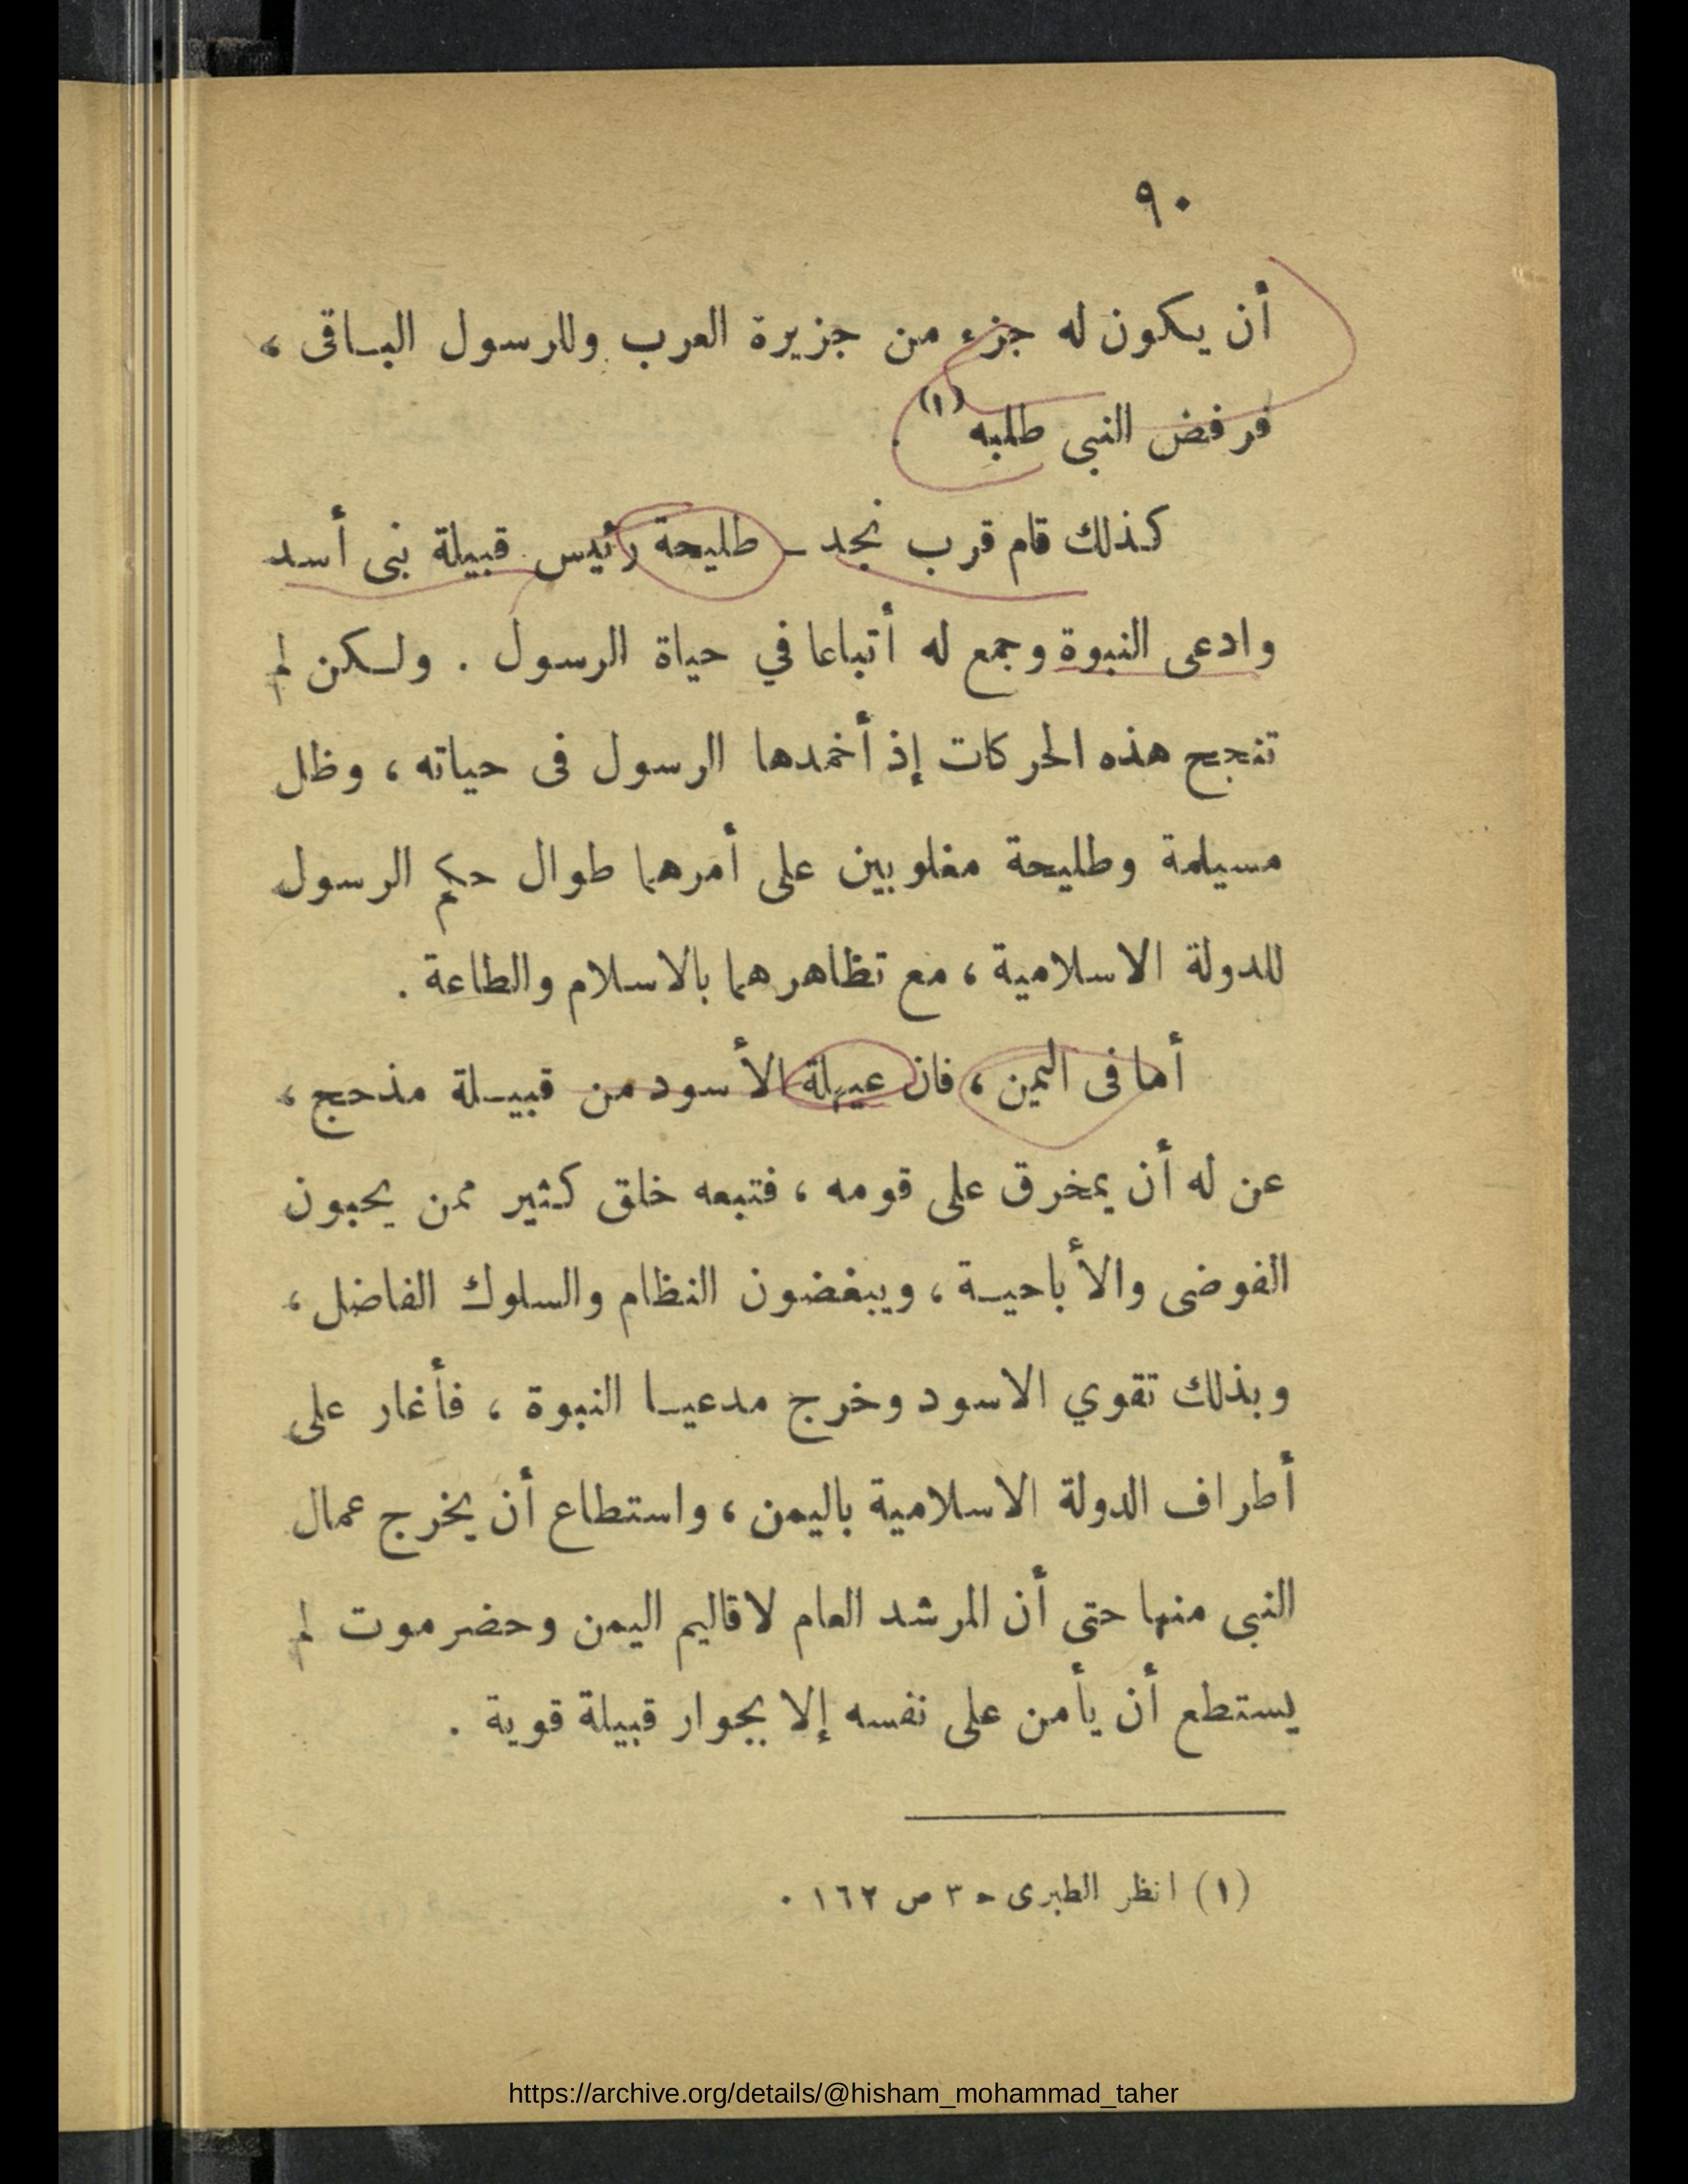 ٩٠
أن يكون له جزء من جزيرة العرب وللرسول الباقى ،
فرفض النبى طلبه (١) .
كذلك قام قرب نجد ـ طليحة رئيس قبيلة بنى أسد
وادعى النبوة وجمع له أتباعا في حياة الرسول . ولكن لم
تنجح هذه الحركات إذ أخمدها الرسول فى حياته ، وظل
مسيلمة وطليحة مغلوبين على أمرهما طوال حكم الرسول
للدولة الاسلامية ، مع تظاهرهما بالاسلام والطاعة .
أما فى اليمن ، فان عيهلة الأسود من قبيلة مذحج ،
عن له أن يمخرق على قومه ، فتبعه خلق كثير ممن يحبون
الفوضى والأباحية ، ويبغضون النظام والسلوك الفاضل ،
وبذلك تقوي الاسود وخرج مدعيا النبوة ، فأغار على
أطراف الدولة الاسلامية باليمن ، واستطاع أن يخرج عمال
النبى منها حتى أن المرشد العام لاقاليم اليمن وحضرموت لم
يستطع أن يأمن على نفسه إلا بجوار قبيلة قوية .
(١) انظر الطبرى حـ ٣ ص ١٦٢ .
https://archive.org/details/@hisham_mohammad_taher